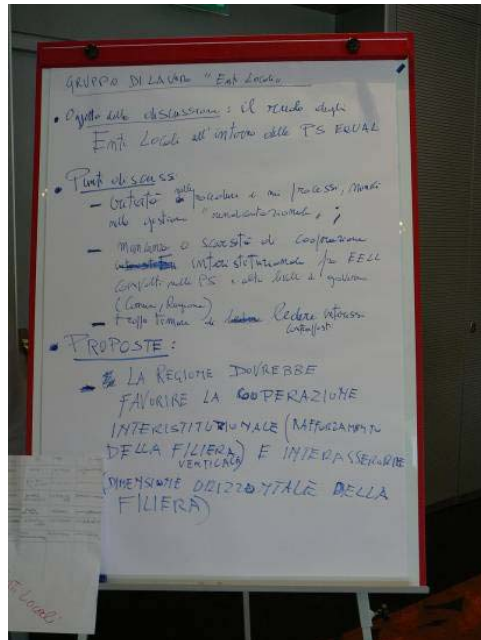 GRUPPO DI LAVORO "Enti Locali"
• Oggetto della discussione: il ruolo degli
Enti Locali all'interno delle PS EQUAL
• Punti discussi
- Criticità nelle procedure e nei processi, 
nella gestione "rendicontazionale";
- mancanza o scarsità di cooperazione
interistituzionale fra EELL
coinvolti nelle PS e altri livelli di governo
(Comune, Regione)
- troppo timore di ledere interessi
contrapposti
• PROPOSTE:
- LA REGIONE DOVREBBE
FAVORIRE LA COOPERAZIONE
INTERISTITUZIONALE (RAFFORZAMENTO
DELLA FILIERA VERTICALE) E INTERASSESSORILE
(DIMENSIONE ORIZZONTALE DELLA
FILIERA)
Locali